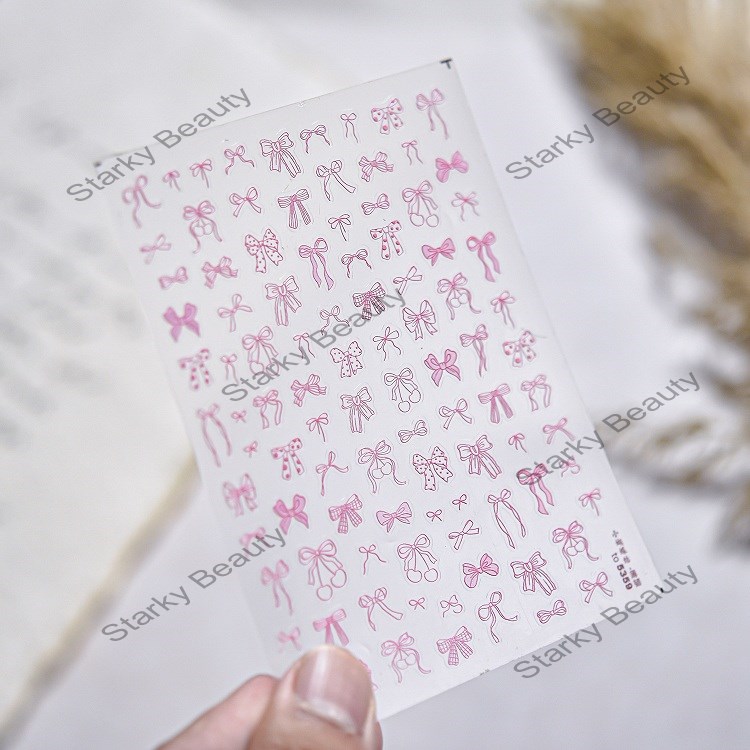 Starky Beauty
Starky Beauty
Starky Beauty
Starky Beauty
Starky Beauty
Starky Beauty
Starky Beauty
TO 5359